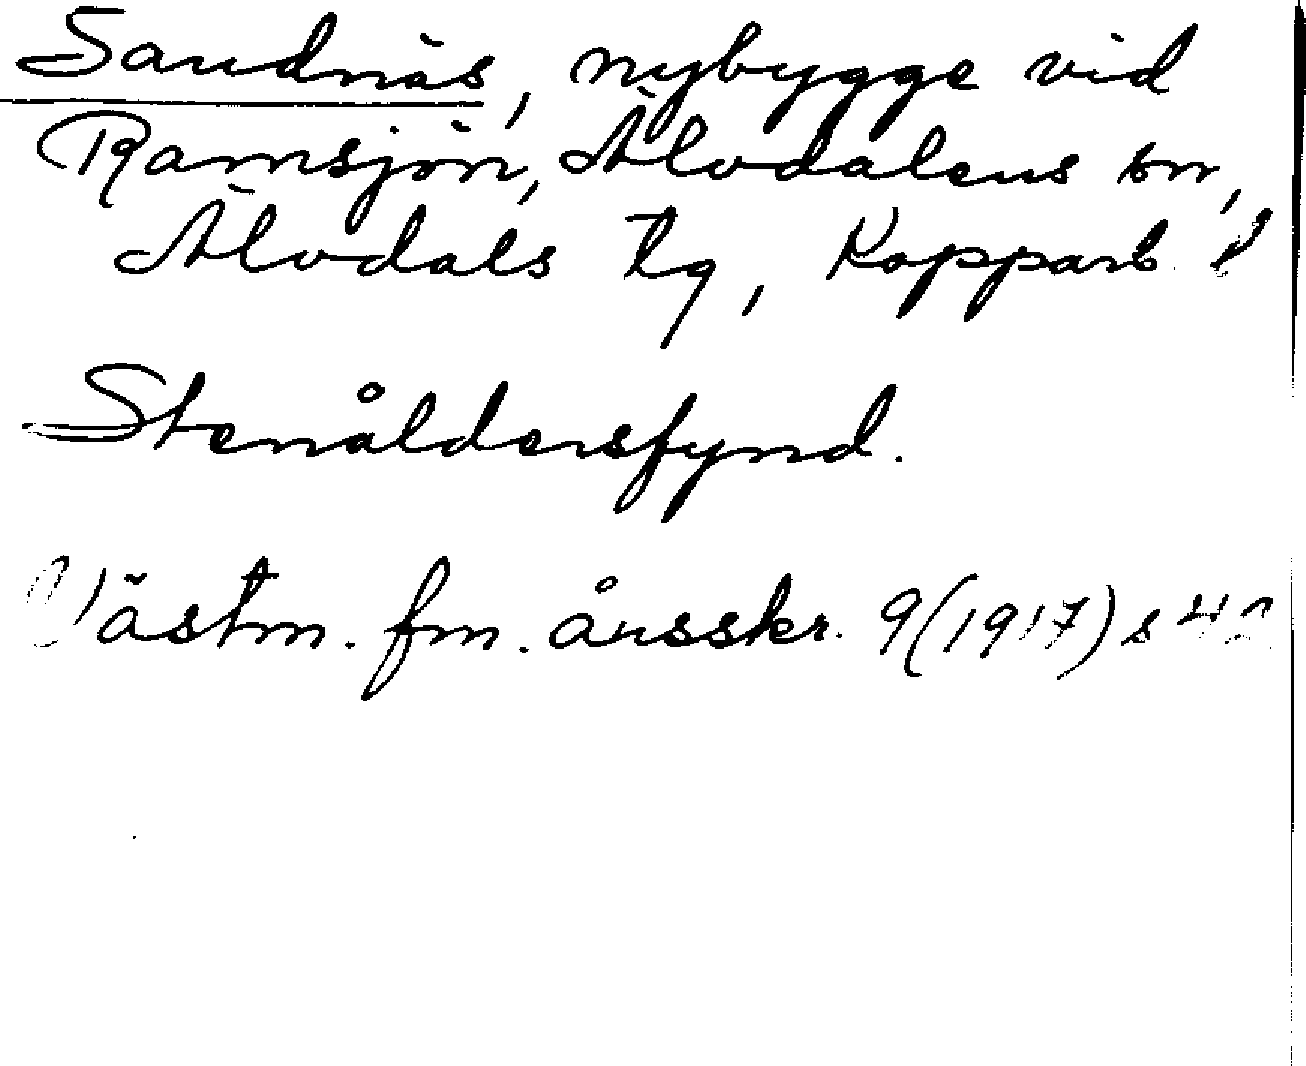 Sandnäs, nybygge vid
Ramsjön, Älvdalens sn,
Älvdals tg, Kopparb. l
Stenåldersfynd.
Västm. fm. årsskr. 9(1917) s